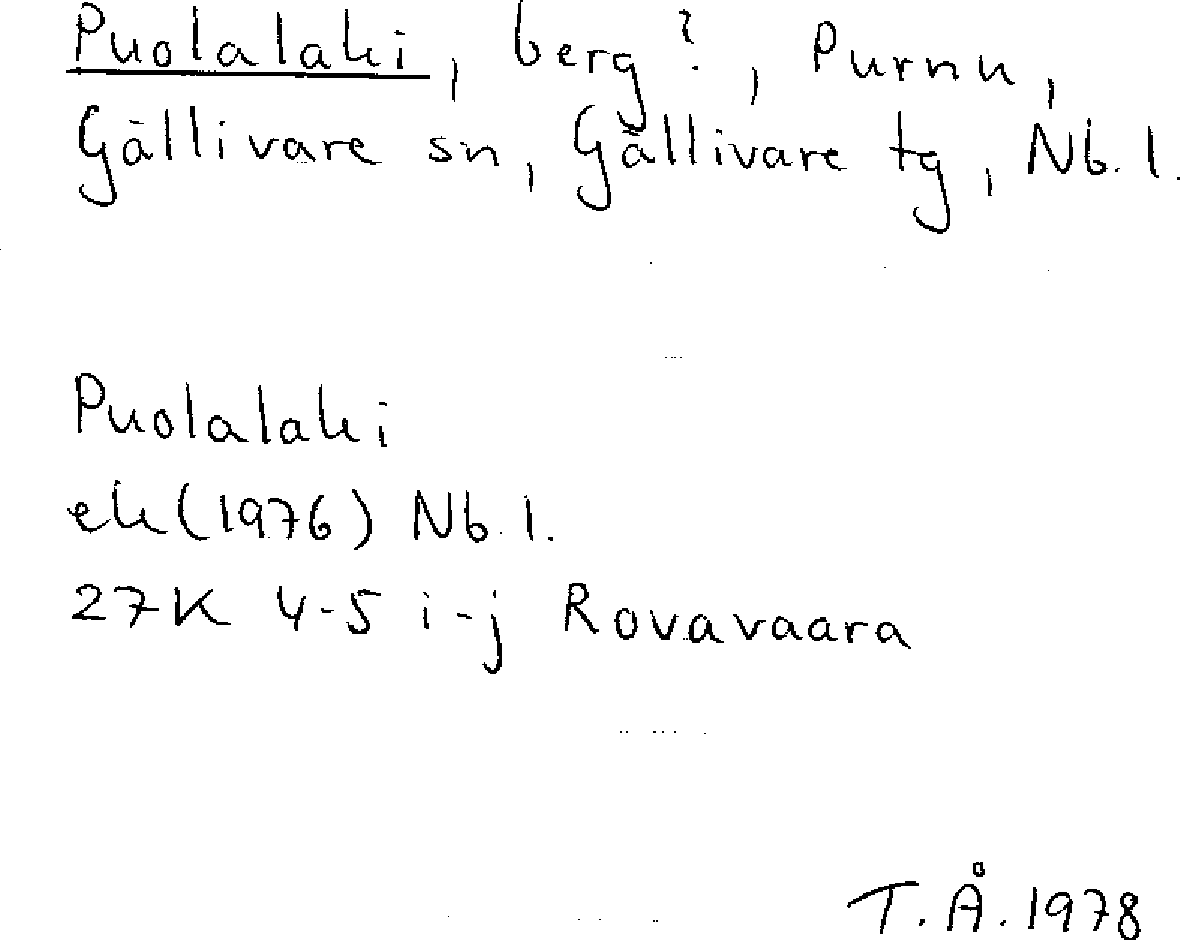 Puolalaki, berg?, Purnu,
Gällivare sn, Gällivare tg, Nb. l.
Puolalaki
ek (1976) Nb. l.
27K 4-5 i-j Rovavaara
T. Å. 1978